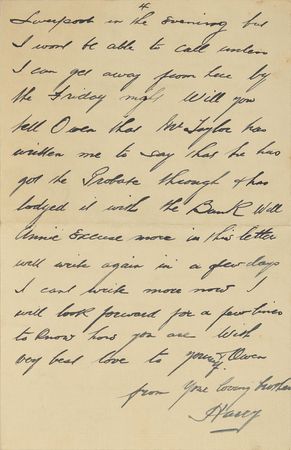 4
Liverpool in the evening but
I wont be able to call unless
I can get away from here by
the Friday night Will you
tell Owen that Mr Taylor has
written me to say that he has
got the Probate through & has
lodged it with the Bank Well
Annie Excuse more in this letter
will write again in a few days
I cant write more now I
will look forward for a few lines
to know how you are With
very best love to you & Owen
from your loving brother
Harry